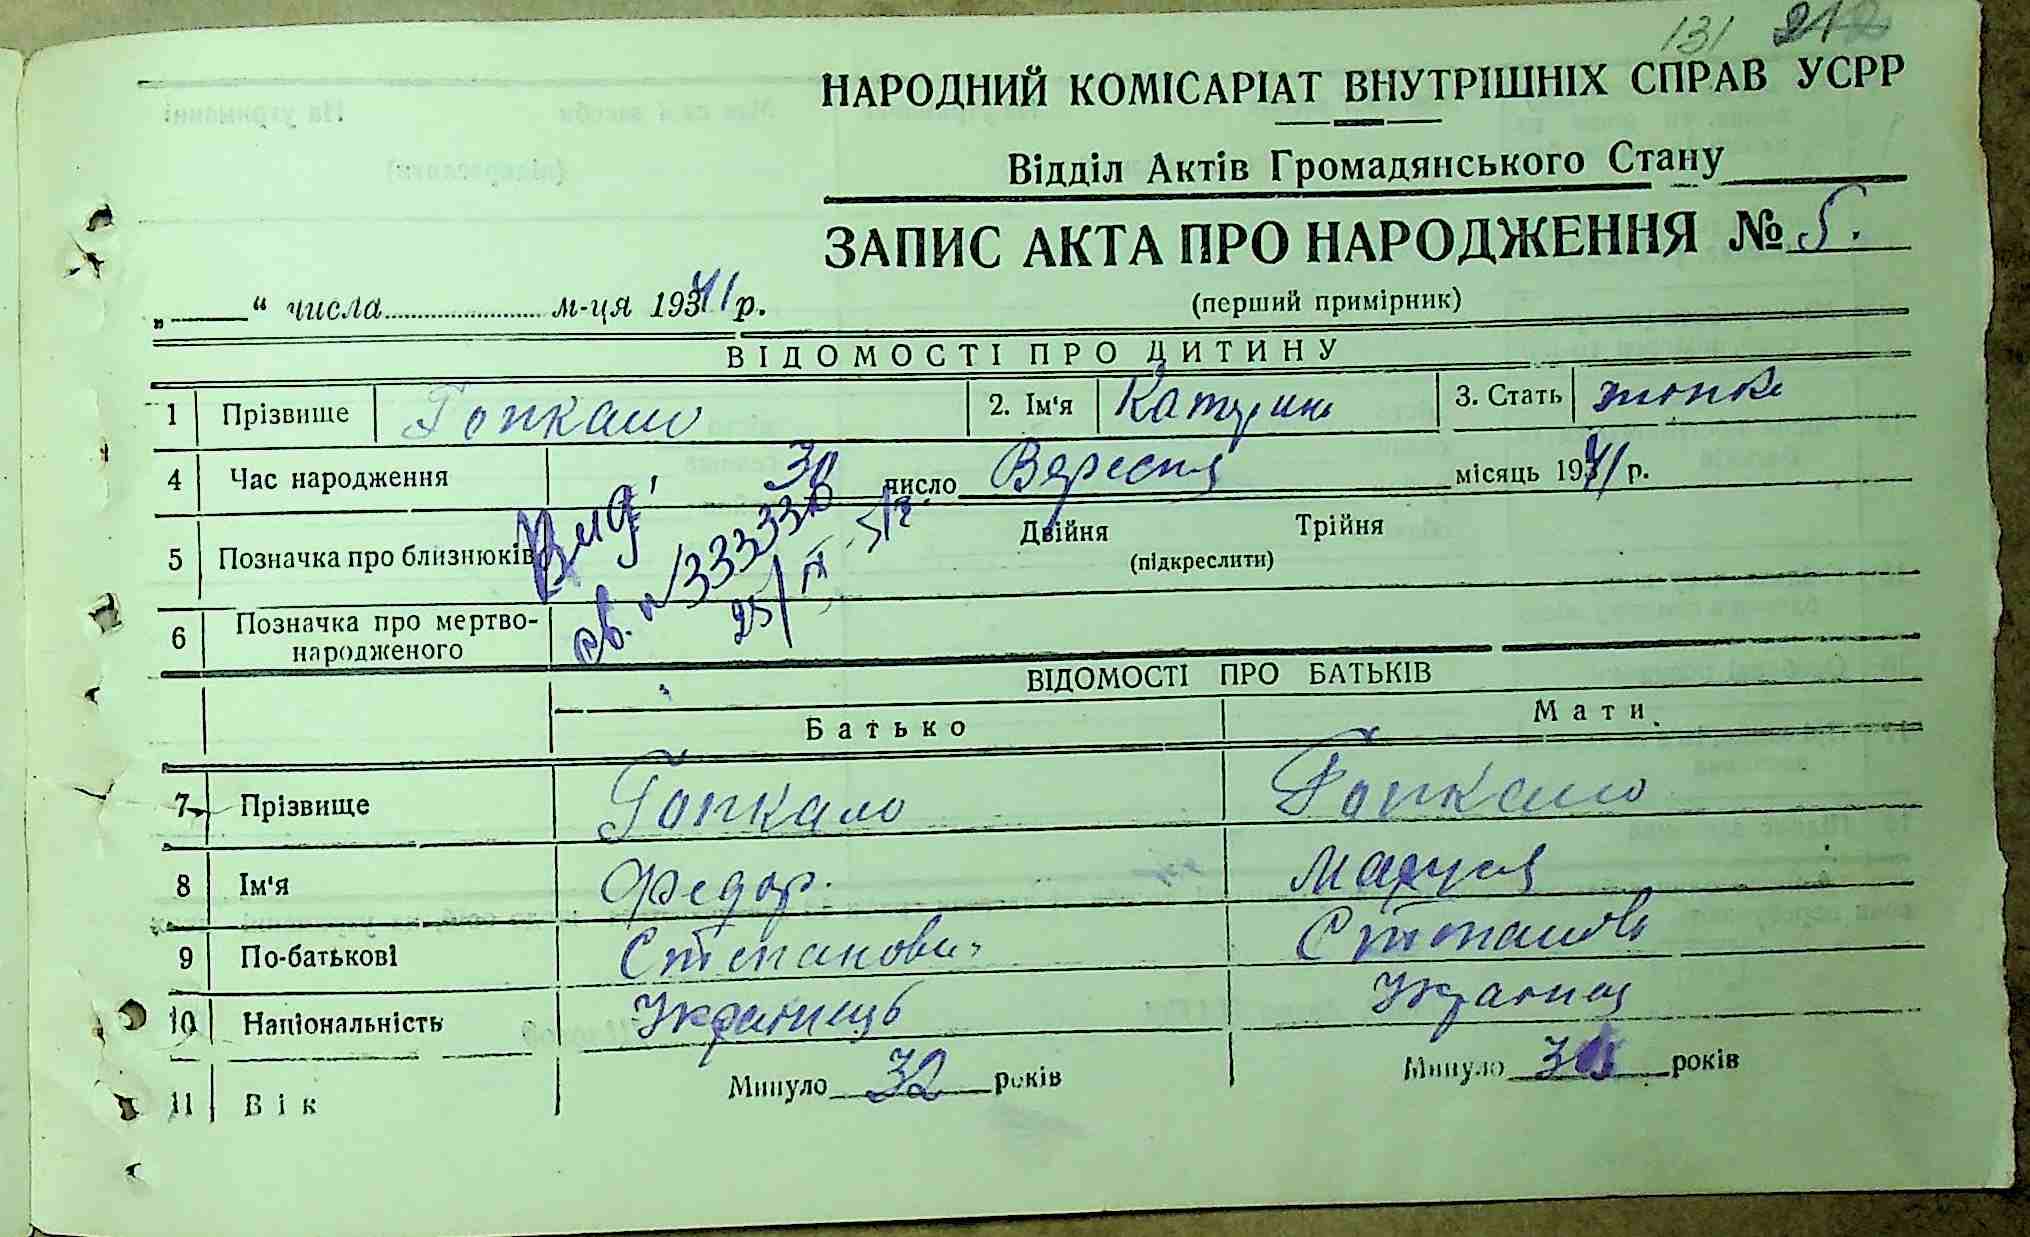 131 212
НАРОДНИЙ КОМІСАРІАТ ВНУТРІШНІХ СПРАВ УСРР
Відділ Актів Громадянського Стану
ЗАПИС АКТА ПРО НАРОДЖЕННЯ № 5.
„ “ числа м-ця 1941 р.
(перший примірник)
ВІДОМОСТІ ПРО ДИТИНУ
1 Прізвище Гопкало 2. Ім'я Катерина 3. Стать жіноча
4 Час народження 30 число Вересня місяць 1941 р.
5 Позначка про близнюків Двійня Трійня
(підкреслити)
Вид.
св. №
25/IX
6 Позначка про мертво-
народженого
ВІДОМОСТІ ПРО БАТЬКІВ
Батько Мати
7 Прізвище Гопкало Гопкало
8 Ім'я Федор. Маруся
9 По-батькові Степанович Степанова
10 Національність Українець Українка
11 Вік Минуло 32 років Минуло років